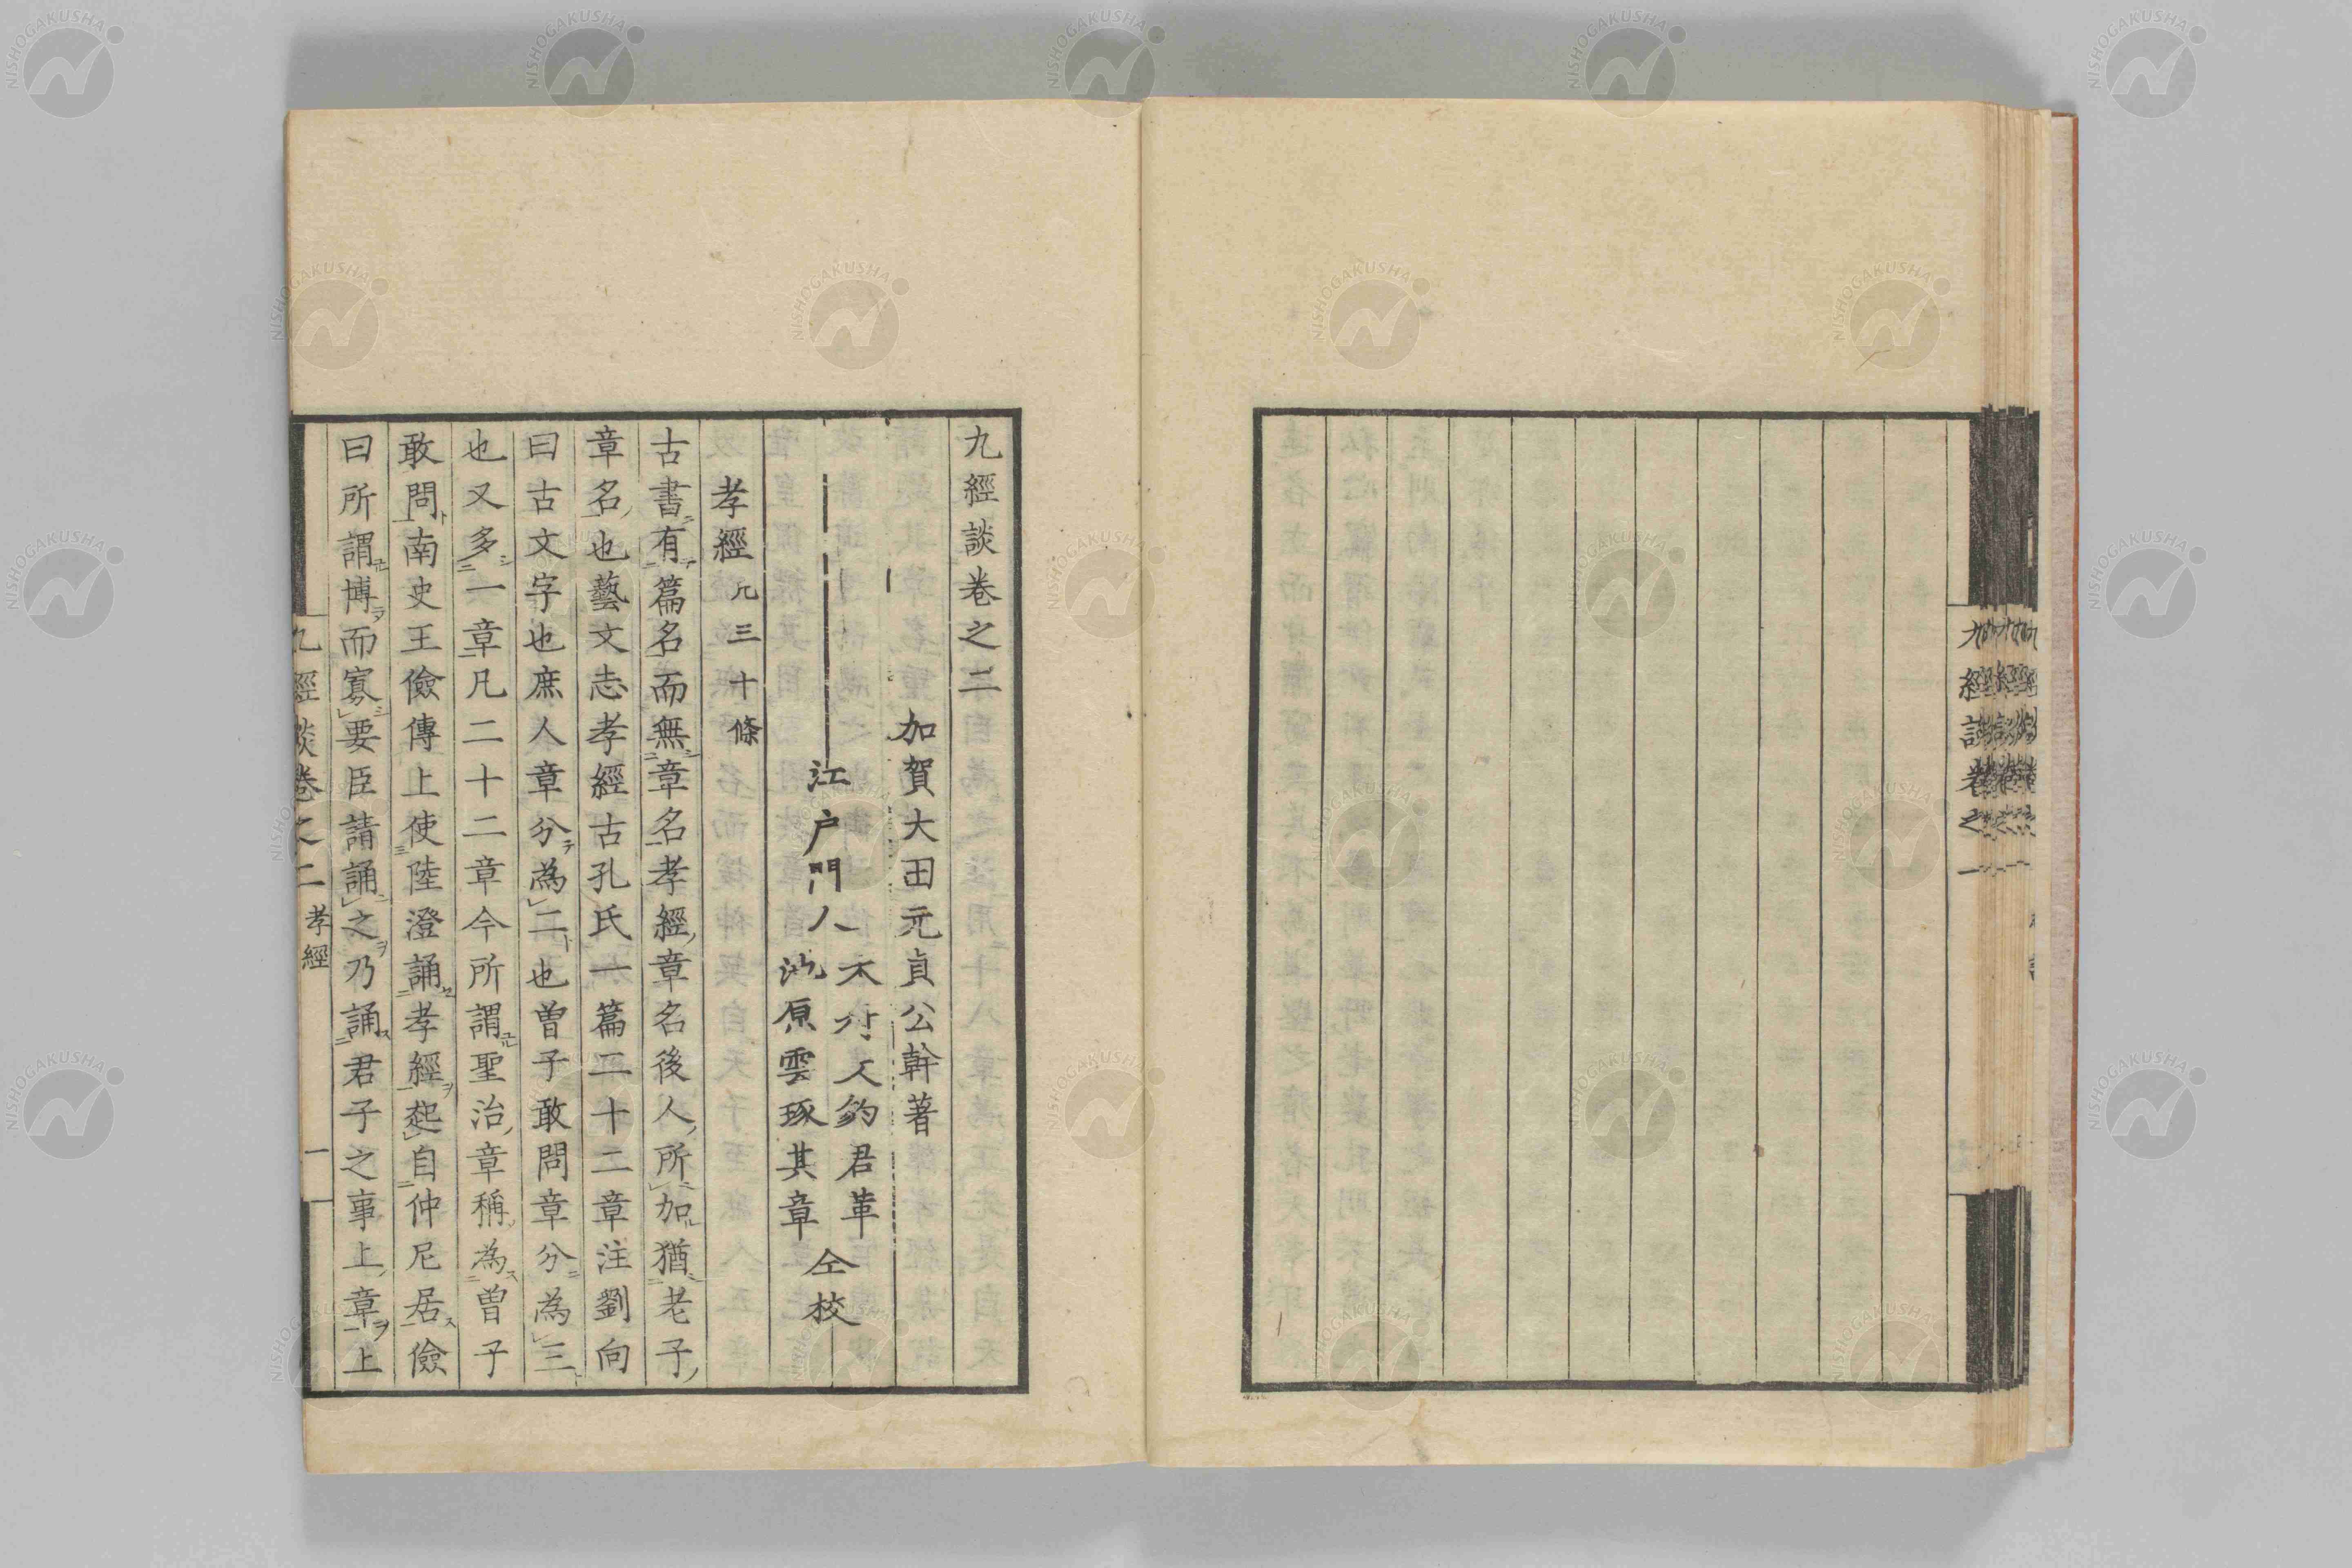 九經談卷之一
九經談卷之二
加賀大田元貞公幹著
江戶門人
木村文鈞君革
原雲琢其章
仝校
孝經凡三十條
古書有篇名而無章名孝經章名後人所加猶老子
章名也藝文志孝經古孔氏一篇二十二章注劉向
曰古文字也庶人章分為二也曾子敢問章分為三
也又多一章凡二十二章今所謂聖治章稱為曾子
敢問南史王儉傳上使陸澄誦孝經起自仲尼居儉
曰所謂博而寡要臣請誦之乃誦君子之事上章上
九經談卷之二 孝經 一
NISHOGAKUSHA